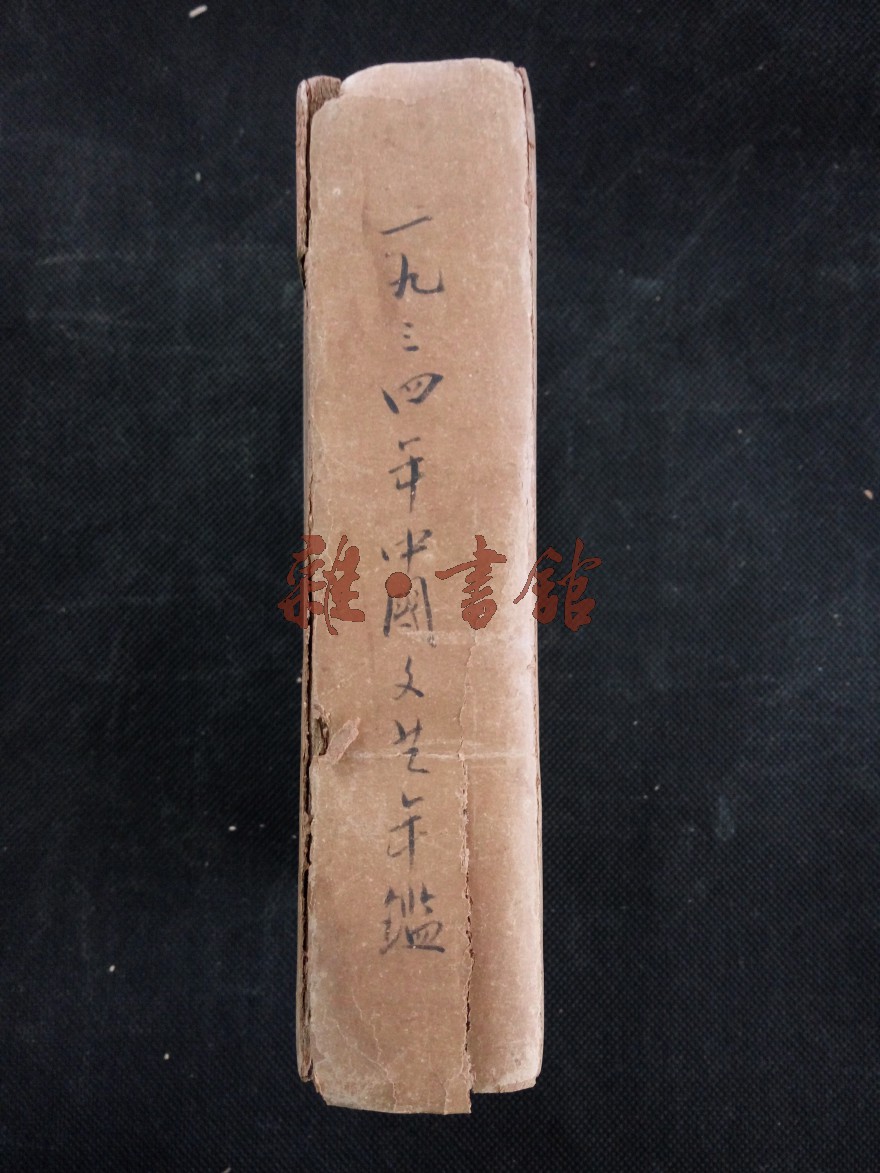 一九三四年中國文艺年鑑
雜·書館